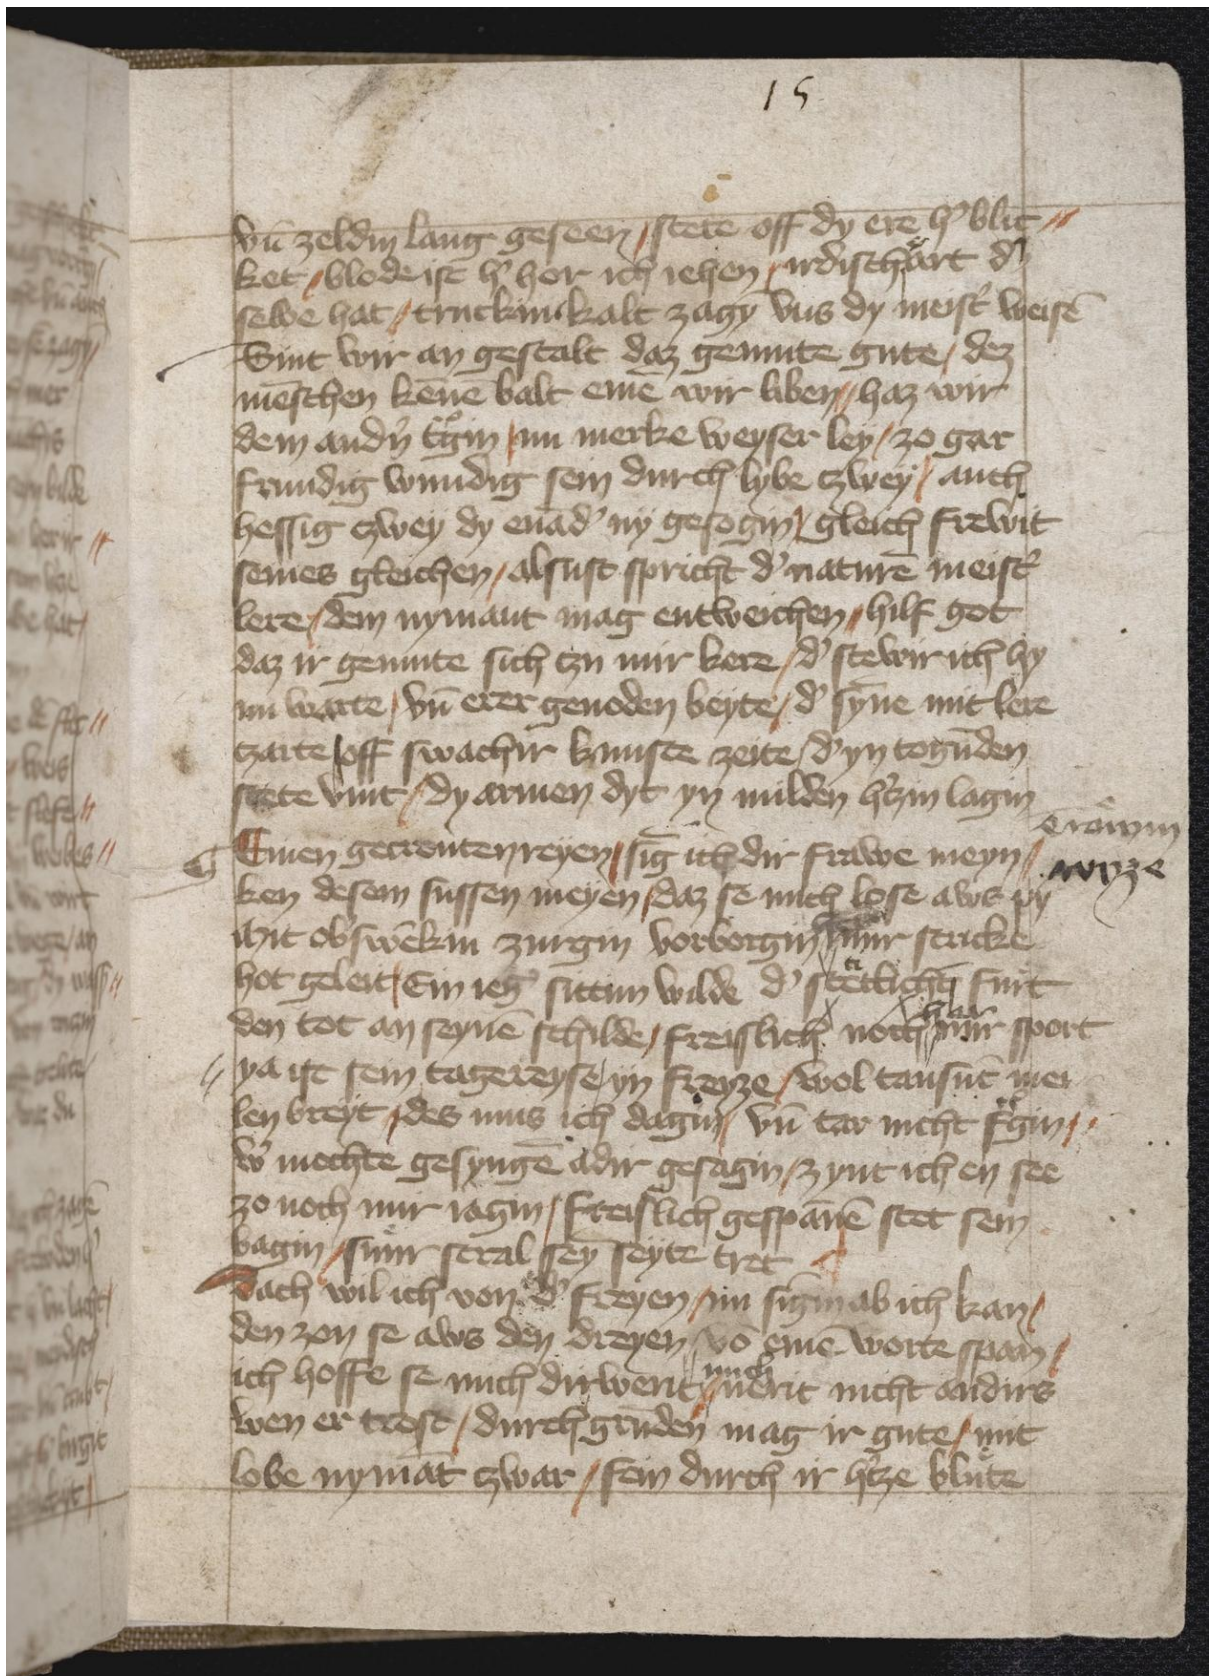 15
vn̄ zeldin lang geseen / stete off dy ere h' blic //
ket / blode ist h' hor ich iehen / irdisch art d'
sewe hat / truckin kalt zagꝫ vns dy meist' weisē
Sint wir an gestalt daz gemute gute / dez
mēschen kēnē balt einē wir liben / haz wir
dem and'n tͦgin / nu merke weyser ley / zo gar
frundig wundig sein durch lybe czwey / auch
hessig czwey dy enād' ny gesogin / gleich frewit
seines gleichen / alsust spricht d' naturē meist'
lere / dem nymant mag entweichen / hilf got
daz ir gemute sich czu mir kere / d' stewir ich hy
nu warte / vn̄ erer genoden beyte / d' syne mit lere
tzarte / off swachir kunste zeite / d' yn togūden
stete vint / dy armen dyt yn milden h'zin lagin
Einen gecronten reyen / sīg ich dir frawe meyn /
ken desem sussen meyen / daz se mich lose aws py
mit obswēkin zurgin vorborgin mir stricke
hot geleit / Ein ieg' sittin wilde d' stetlichī furt
den tot an seynē schilde / freislich noch mir sport
ya ist sein tagereyse / yn freyze / wol tausūt mei
len breyt / des mus ich dagin / vn̄ tar nicht fͦgin /
w' mochte gesyngē adir gesagin / zynt ich en see
zo noch mir iagin / freislich gespānē stet sein
bagin / sinir stral sey seyte tret
Dach wil ich von d' freyen / nu singin ab ich kan /
den zon se aws den dreyen / vō einē worte span /
ich hoffe se mich dirwerit / mich nerit nicht andirs
wen er trost / durch grūden mag ir gute / mit
lobe nymāt czwar / sein durch ir h'tze blute